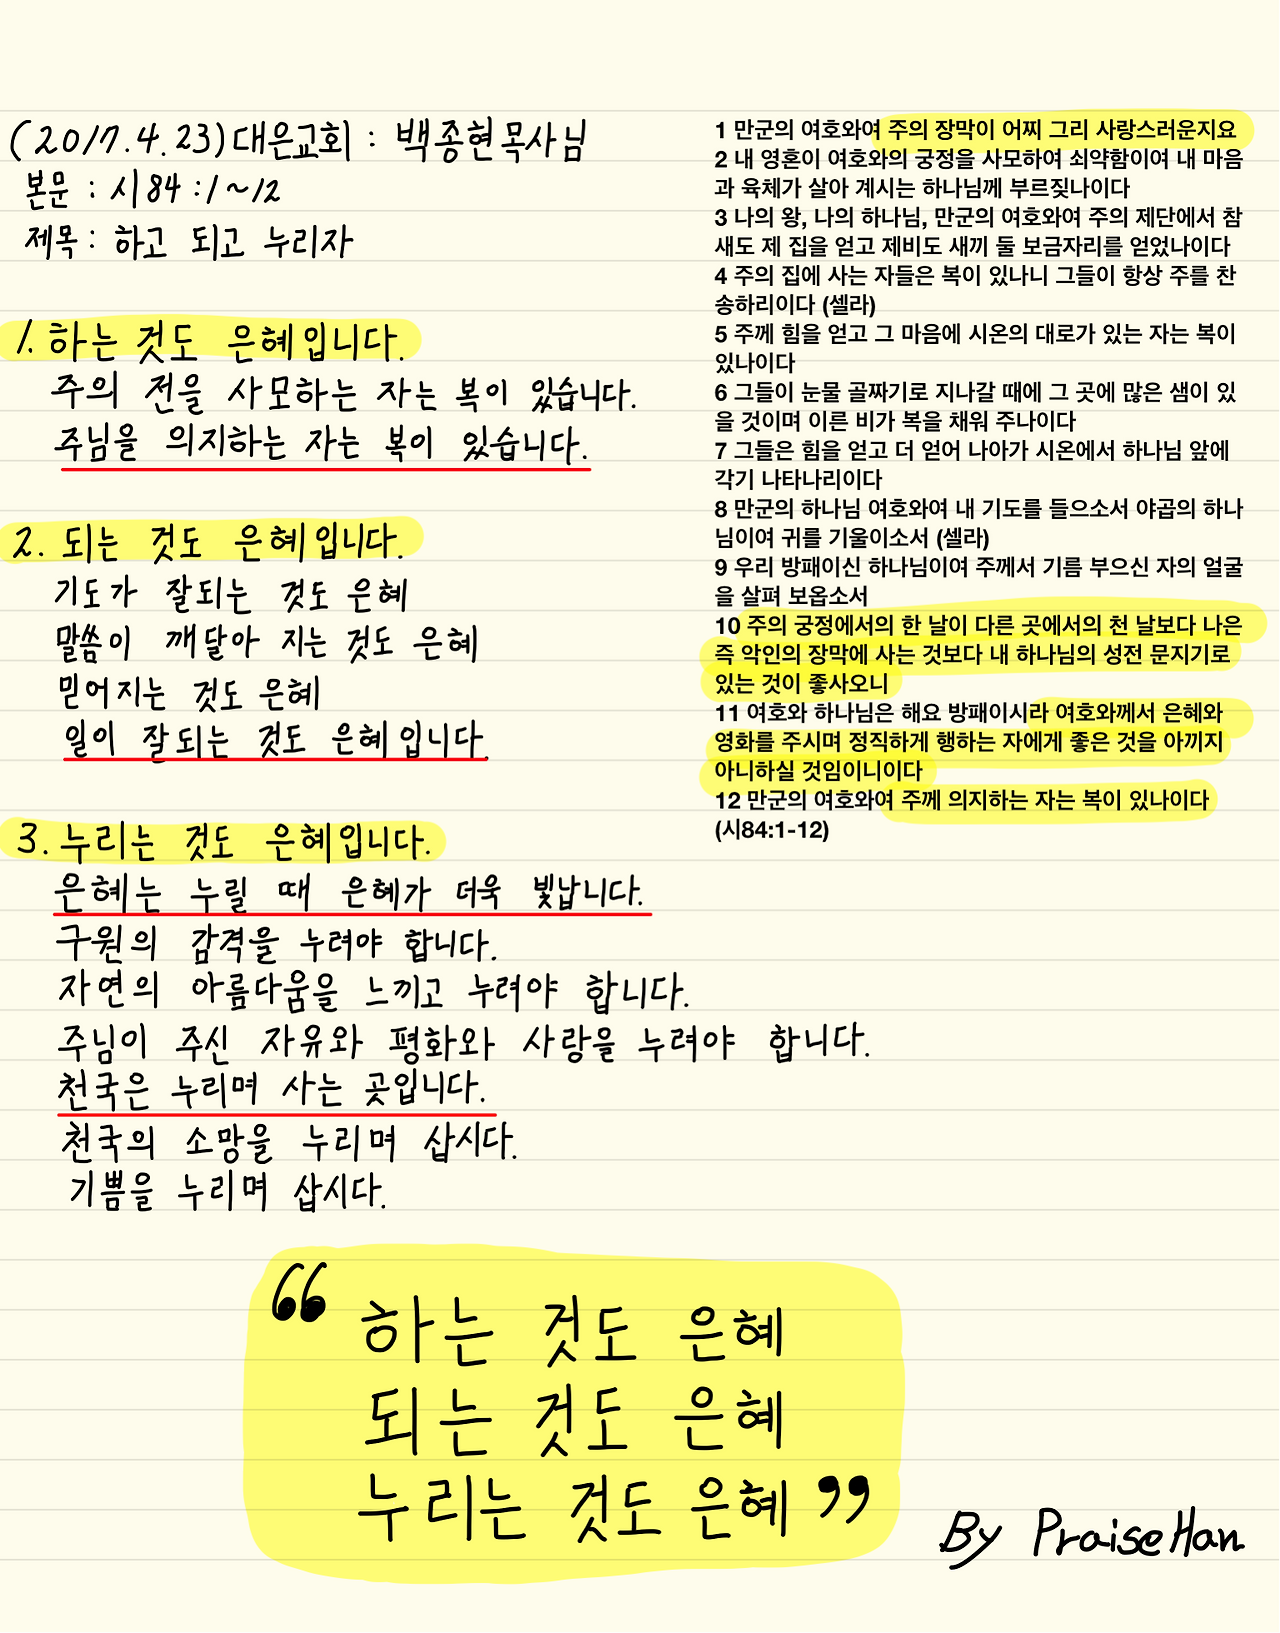 (2017.4.23)대은교회 : 백종현목사님
본문 : 시84:1~12
제목 : 하고 되고 누리자
1. 하는 것도 은혜입니다.
주의 전을 사모하는 자는 복이 있습니다.
주님을 의지하는 자는 복이 있습니다.
2. 되는 것도 은혜입니다.
기도가 잘되는 것도 은혜
말씀이 깨달아 지는 것도 은혜
믿어지는 것도 은혜
일이 잘되는 것도 은혜입니다.
3. 누리는 것도 은혜입니다.
은혜는 누릴 때 은혜가 더욱 빛납니다.
구원의 감격을 누려야 합니다.
자연의 아름다움을 느끼고 누려야 합니다.
주님이 주신 자유와 평화와 사랑을 누려야 합니다.
천국은 누리며 사는 곳입니다.
천국의 소망을 누리며 삽시다.
기쁨을 누리며 삽시다.
1 만군의 여호와여 주의 장막이 어찌 그리 사랑스러운지요
2 내 영혼이 여호와의 궁정을 사모하여 쇠약함이여 내 마음
과 육체가 살아 계시는 하나님께 부르짖나이다
3 나의 왕, 나의 하나님, 만군의 여호와여 주의 제단에서 참
새도 제 집을 얻고 제비도 새끼 둘 보금자리를 얻었나이다
4 주의 집에 사는 자들은 복이 있나니 그들이 항상 주를 찬
송하리이다 (셀라)
5 주께 힘을 얻고 그 마음에 시온의 대로가 있는 자는 복이
있나이다
6 그들이 눈물 골짜기로 지나갈 때에 그 곳에 많은 샘이 있
을 것이며 이른 비가 복을 채워 주나이다
7 그들은 힘을 얻고 더 얻어 나아가 시온에서 하나님 앞에
각기 나타나리이다
8 만군의 하나님 여호와여 내 기도를 들으소서 야곱의 하나
님이여 귀를 기울이소서 (셀라)
9 우리 방패이신 하나님이여 주께서 기름 부으신 자의 얼굴
을 살펴 보옵소서
10 주의 궁정에서의 한 날이 다른 곳에서의 천 날보다 나은
즉 악인의 장막에 사는 것보다 내 하나님의 성전 문지기로
있는 것이 좋사오니
11 여호와 하나님은 해요 방패이시라 여호와께서 은혜와
영화를 주시며 정직하게 행하는 자에게 좋은 것을 아끼지
아니하실 것임이니이다
12 만군의 여호와여 주께 의지하는 자는 복이 있나이다
(시84:1-12)
“ 하는 것도 은혜
되는 것도 은혜
누리는 것도 은혜 ”
By PraiseHan